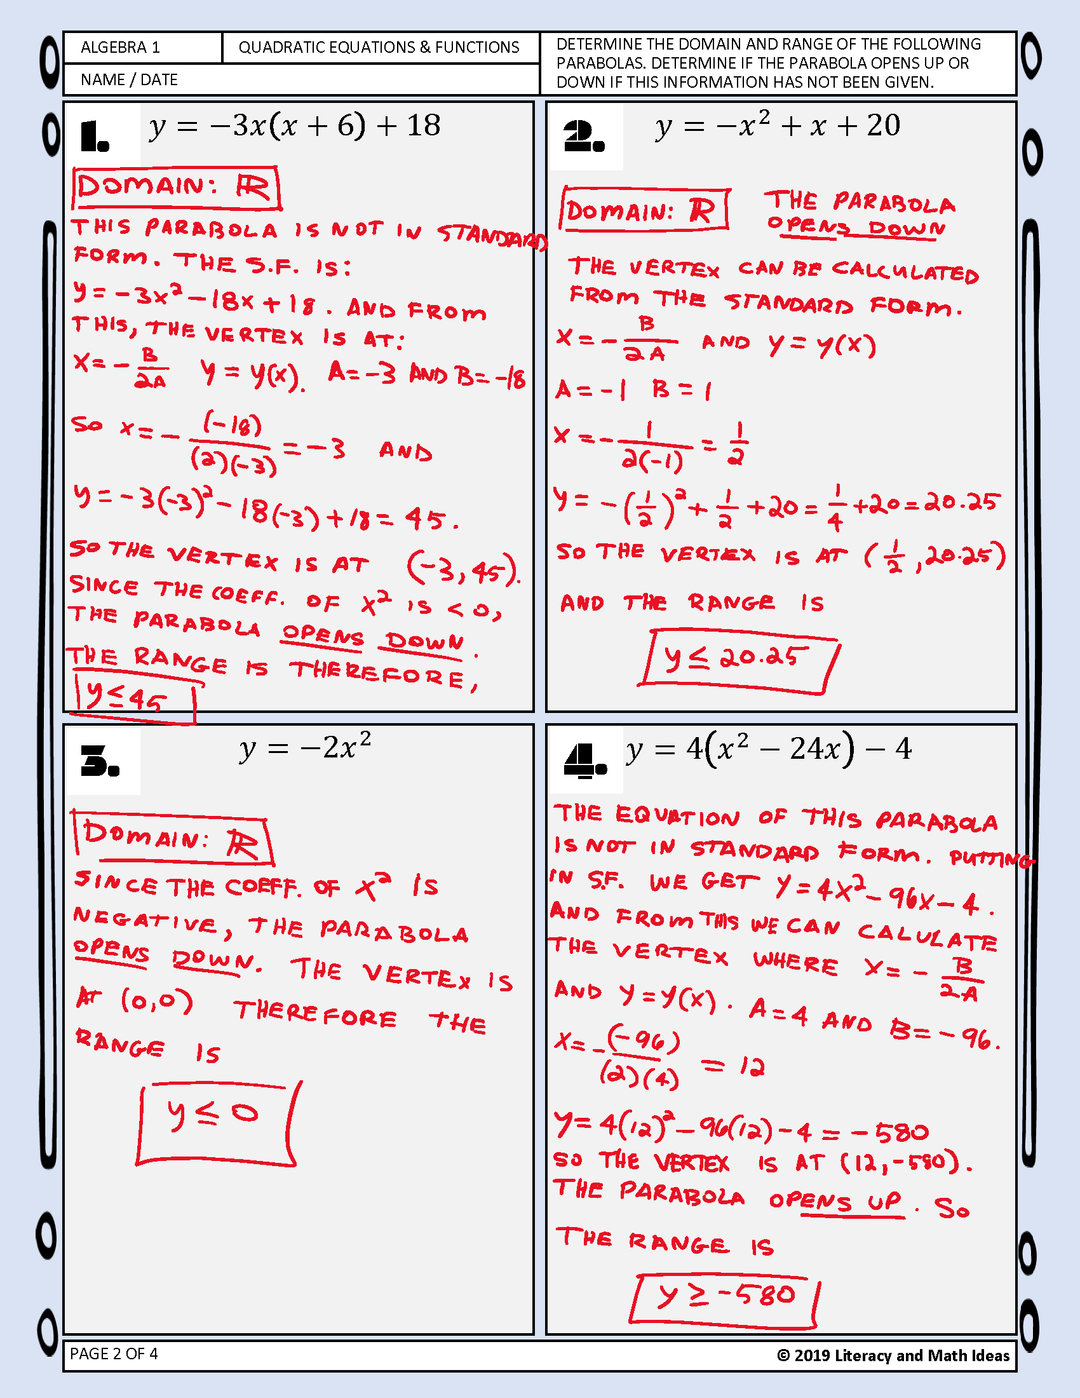 ALGEBRA 1
QUADRATIC EQUATIONS & FUNCTIONS
NAME / DATE
DETERMINE THE DOMAIN AND RANGE OF THE FOLLOWING
PARABOLAS. DETERMINE IF THE PARABOLA OPENS UP OR
DOWN IF THIS INFORMATION HAS NOT BEEN GIVEN.
1. y = −3x(x + 6) + 18
DOMAIN: ℝ
THIS PARABOLA IS NOT IN STANDARD
FORM. THE S.F. IS:
y = −3x² − 18x + 18. AND FROM
THIS, THE VERTEX IS AT:
X = − B/2A y = y(x). A = −3 AND B = −18
SO X = − (−18)/(2)(−3) = −3 AND
y = −3(−3)² − 18(−3) + 18 = 45.
SO THE VERTEX IS AT (−3, 45).
SINCE THE COEFF. OF X² IS < 0,
THE PARABOLA OPENS DOWN.
THE RANGE IS THEREFORE,
y ≤ 45
2. y = −x² + x + 20
DOMAIN: ℝ
THE PARABOLA
OPENS DOWN
THE VERTEX CAN BE CALCULATED
FROM THE STANDARD FORM.
X = − B/2A AND y = y(x)
A = −1 B = 1
X = − 1/2(−1) = 1/2
y = −(1/2)² + 1/2 + 20 = 1/4 + 20 = 20.25
SO THE VERTEX IS AT (1/2, 20.25)
AND THE RANGE IS
y ≤ 20.25
3. y = −2x²
DOMAIN: ℝ
SINCE THE COEFF. OF X² IS
NEGATIVE, THE PARABOLA
OPENS DOWN. THE VERTEX IS
AT (0,0) THEREFORE THE
RANGE IS
y ≤ 0
4. y = 4(x² − 24x) − 4
THE EQUATION OF THIS PARABOLA
IS NOT IN STANDARD FORM. PUTTING
IN S.F. WE GET y = 4x² − 96x − 4.
AND FROM THIS WE CAN CALULATE
THE VERTEX WHERE X = − B/2A
AND y = y(x). A = 4 AND B = −96.
X = − (−96)/(2)(4) = 12
y = 4(12)² − 96(12) − 4 = −580
SO THE VERTEX IS AT (12, −580).
THE PARABOLA OPENS UP. SO
THE RANGE IS
y ≥ −580
PAGE 2 OF 4
© 2019 Literacy and Math Ideas